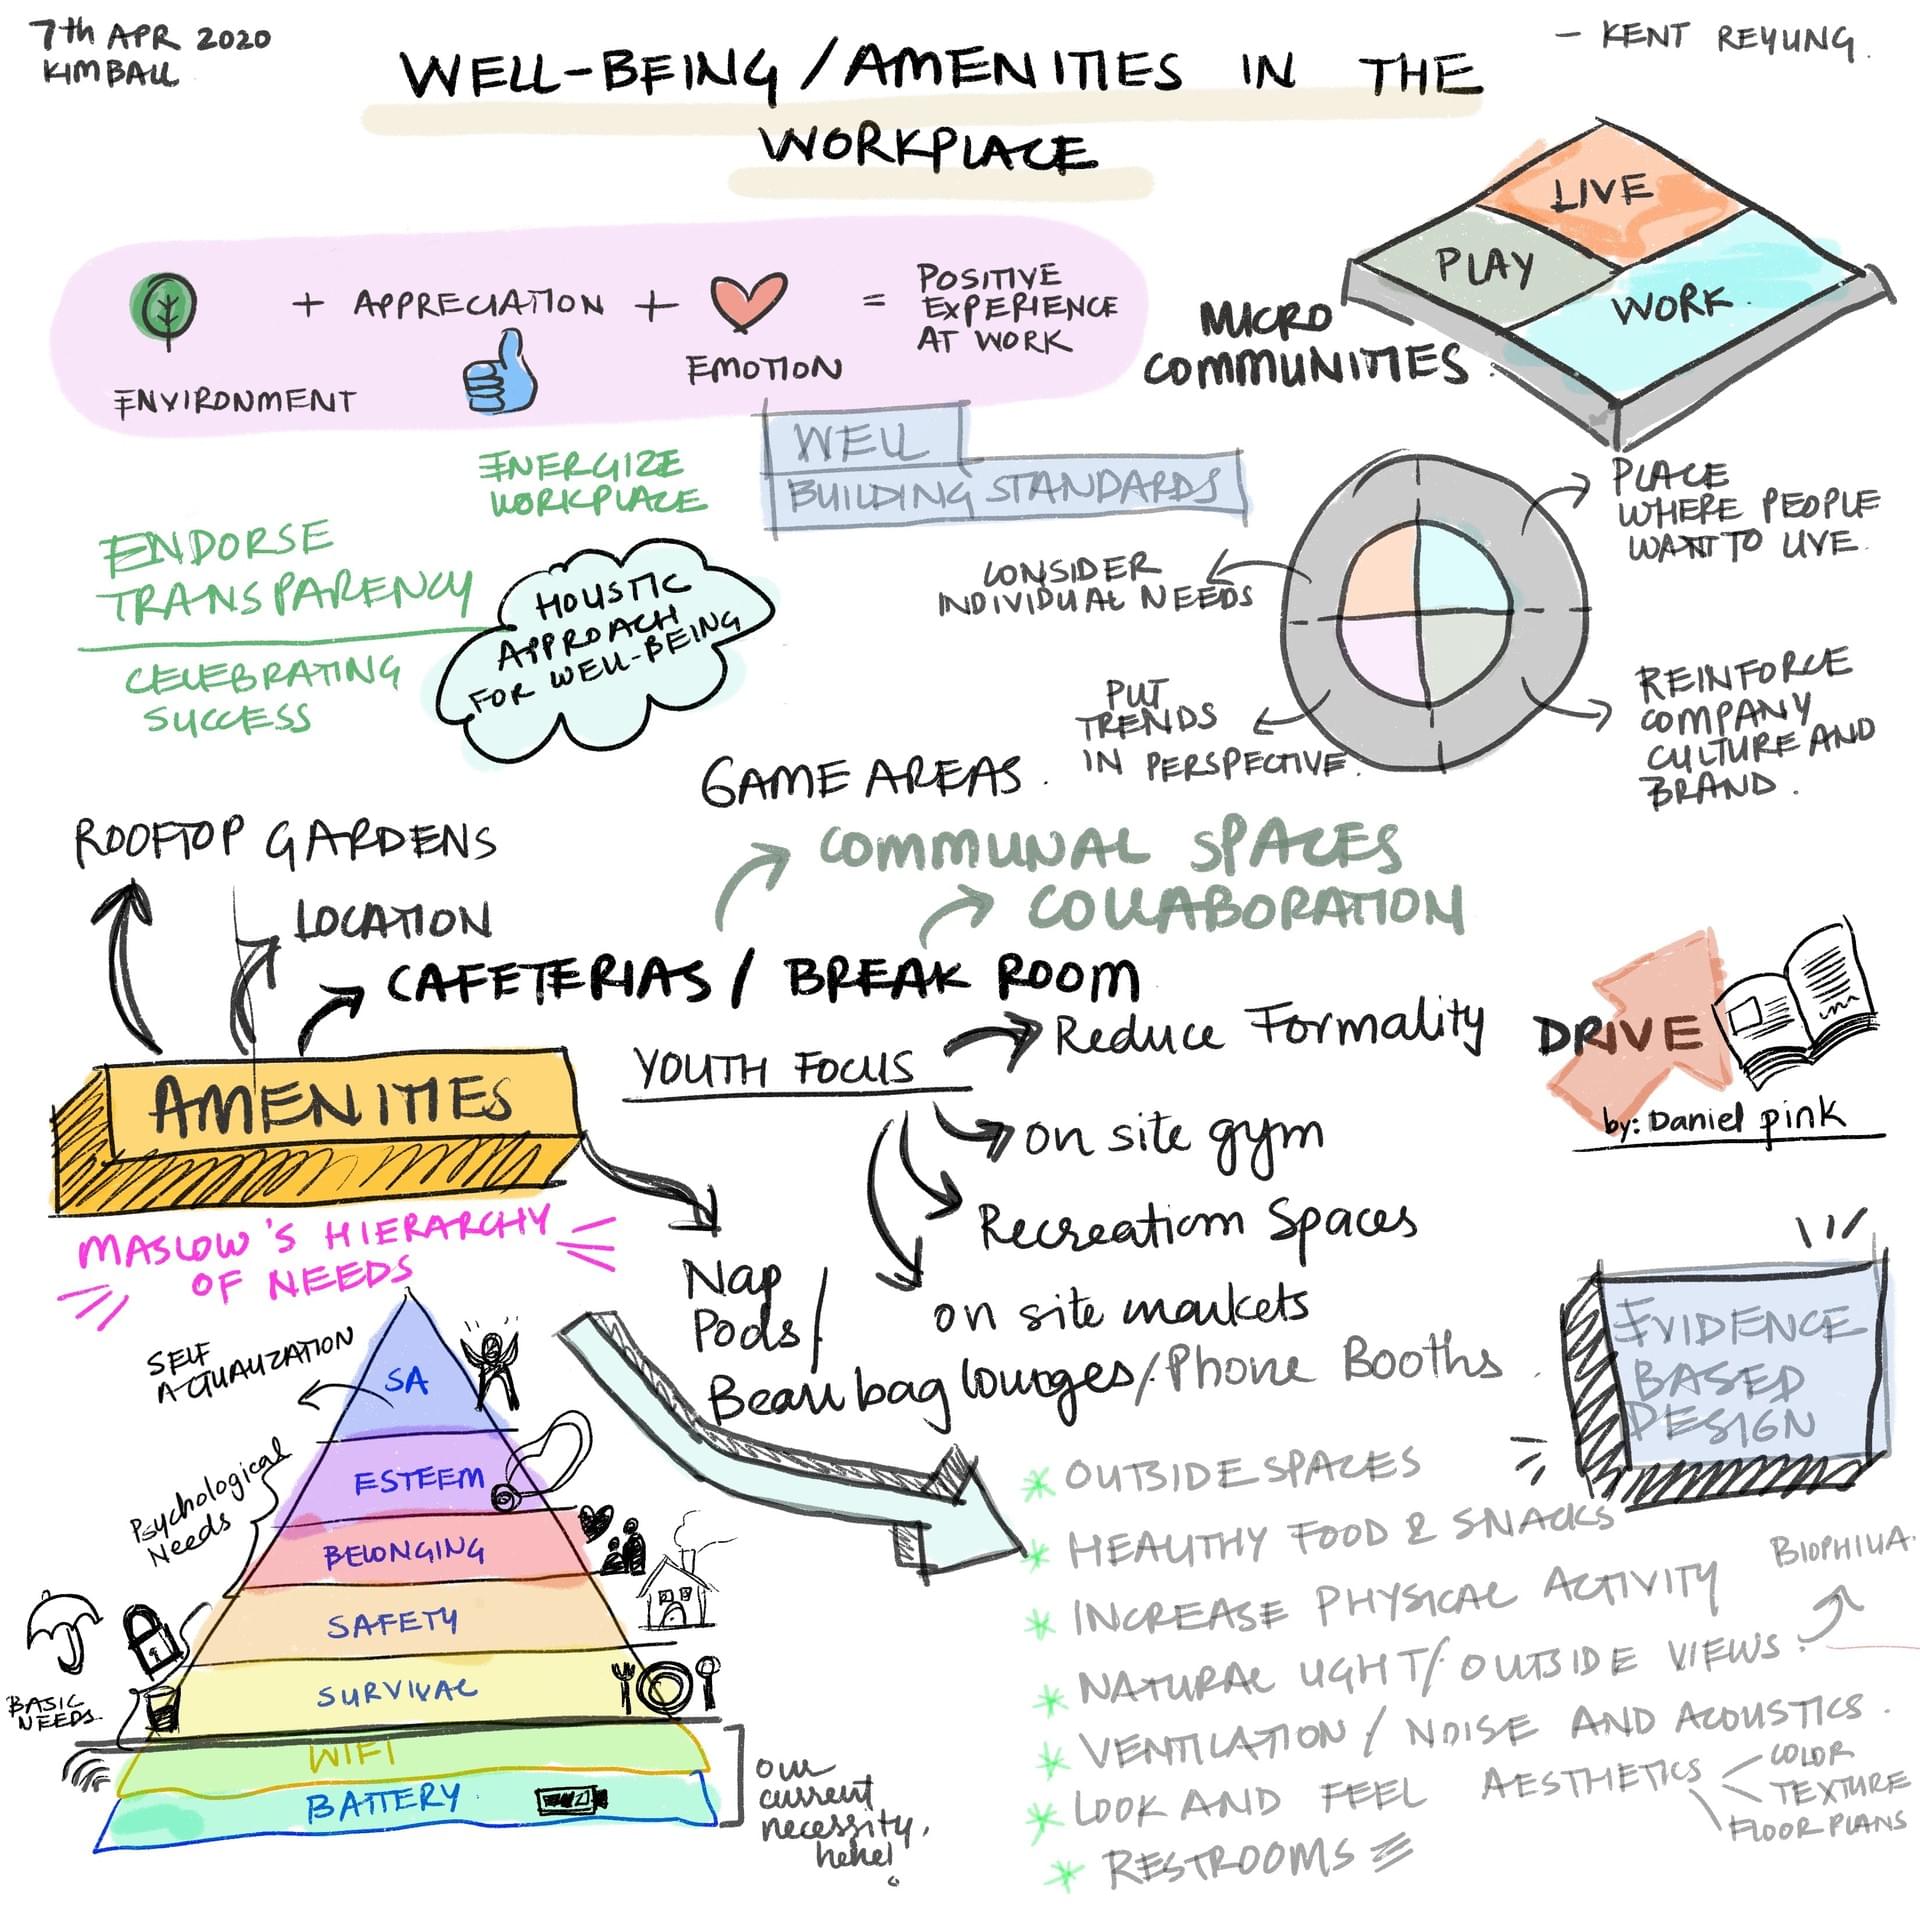 7th APR 2020
KIMBALL
- KENT REYUNG.
WELL-BEING/AMENITIES IN THE
WORKPLACE
LIVE
PLAY
WORK
MICRO
COMMUNITIES
ENVIRONMENT
+ APPRECIATION +
EMOTION
=
POSITIVE
EXPERIENCE
AT WORK
ENERGIZE
WORKPLACE
WELL
BUILDING STANDARDS
ENDORSE
TRANSPARENCY
CELEBRATING
SUCCESS
HOLISTIC
APPROACH
FOR WELL-BEING
CONSIDER
INDIVIDUAL NEEDS
PLACE
WHERE PEOPLE
WANT TO LIVE.
PUT
TRENDS
IN PERSPECTIVE.
REINFORCE
COMPANY
CULTURE AND
BRAND.
GAME AREAS.
ROOFTOP GARDENS
LOCATION
COMMUNAL SPACES
COLLABORATION
CAFETERIAS / BREAK ROOM
AMENITIES
YOUTH FOCUS
Reduce Formality
on site gym
Recreation Spaces
on site markets
Nap
Pods/
Bean bag lounges/Phone Booths.
DRIVE
by: Daniel pink
MASLOW'S HIERARCHY
OF NEEDS
SELF
ACTUALIZATION
SA
ESTEEM
Psychological
Needs
BELONGING
SAFETY
SURVIVAL
BASIC
NEEDS.
WIFI
BATTERY.
our
current
necessity,
hehe!
EVIDENCE
BASED
DESIGN
* OUTSIDE SPACES
* HEALTHY FOOD & SNACKS
* INCREASE PHYSICAL ACTIVITY
BIOPHILIA.
* NATURAL LIGHT/OUTSIDE VIEWS.
* VENTILATION / NOISE AND ACOUSTICS.
* LOOK AND FEEL AESTHETICS
COLOR
TEXTURE
FLOOR PLANS
* RESTROOMS